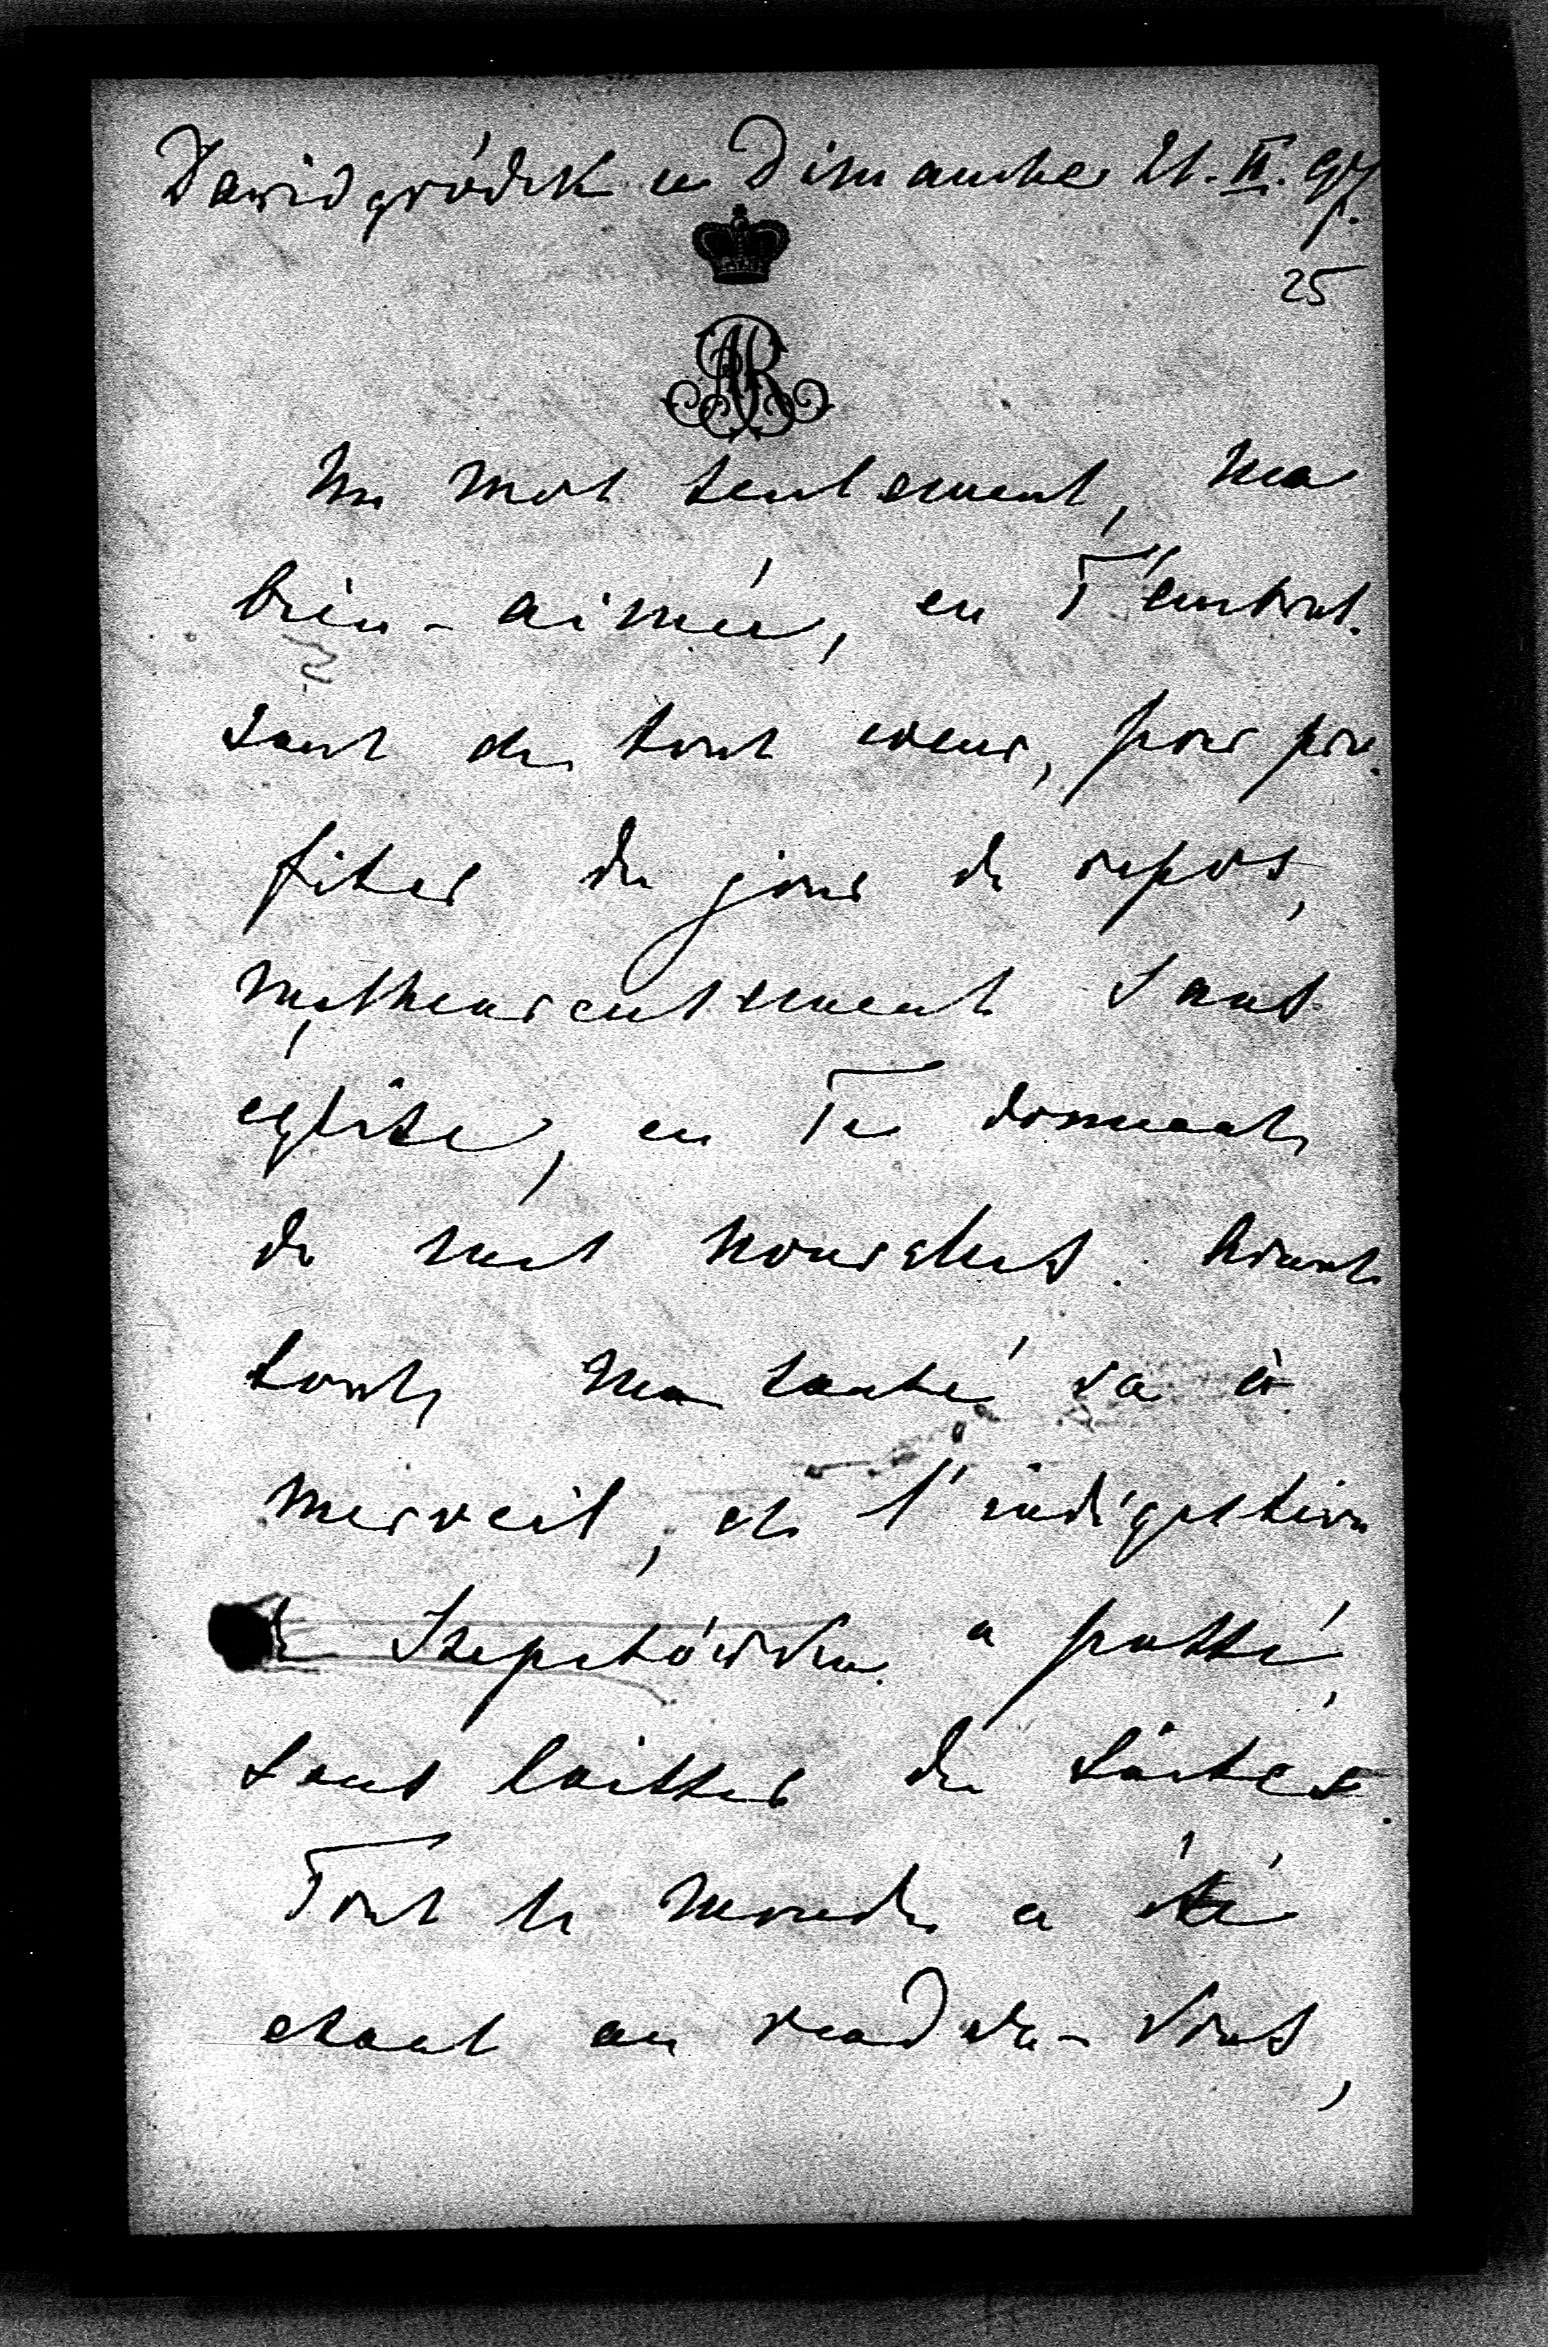 Dawidgródek ce Dimanche 21. II. 97.
25
AR
Un mot seulement, ma
bien-aimée, en T'embras.
sant de tout coeur, pour pro.
fiter du jour de repos,
malheureusement sans
eglise, en Te donnant
de mes nouvelles. Avant
tout, ma santé va à
merveil, et l'indigestion
de Szepetówka a passé,
sans laisser de suites.
Tout le monde a été
exact au rendez-vous,